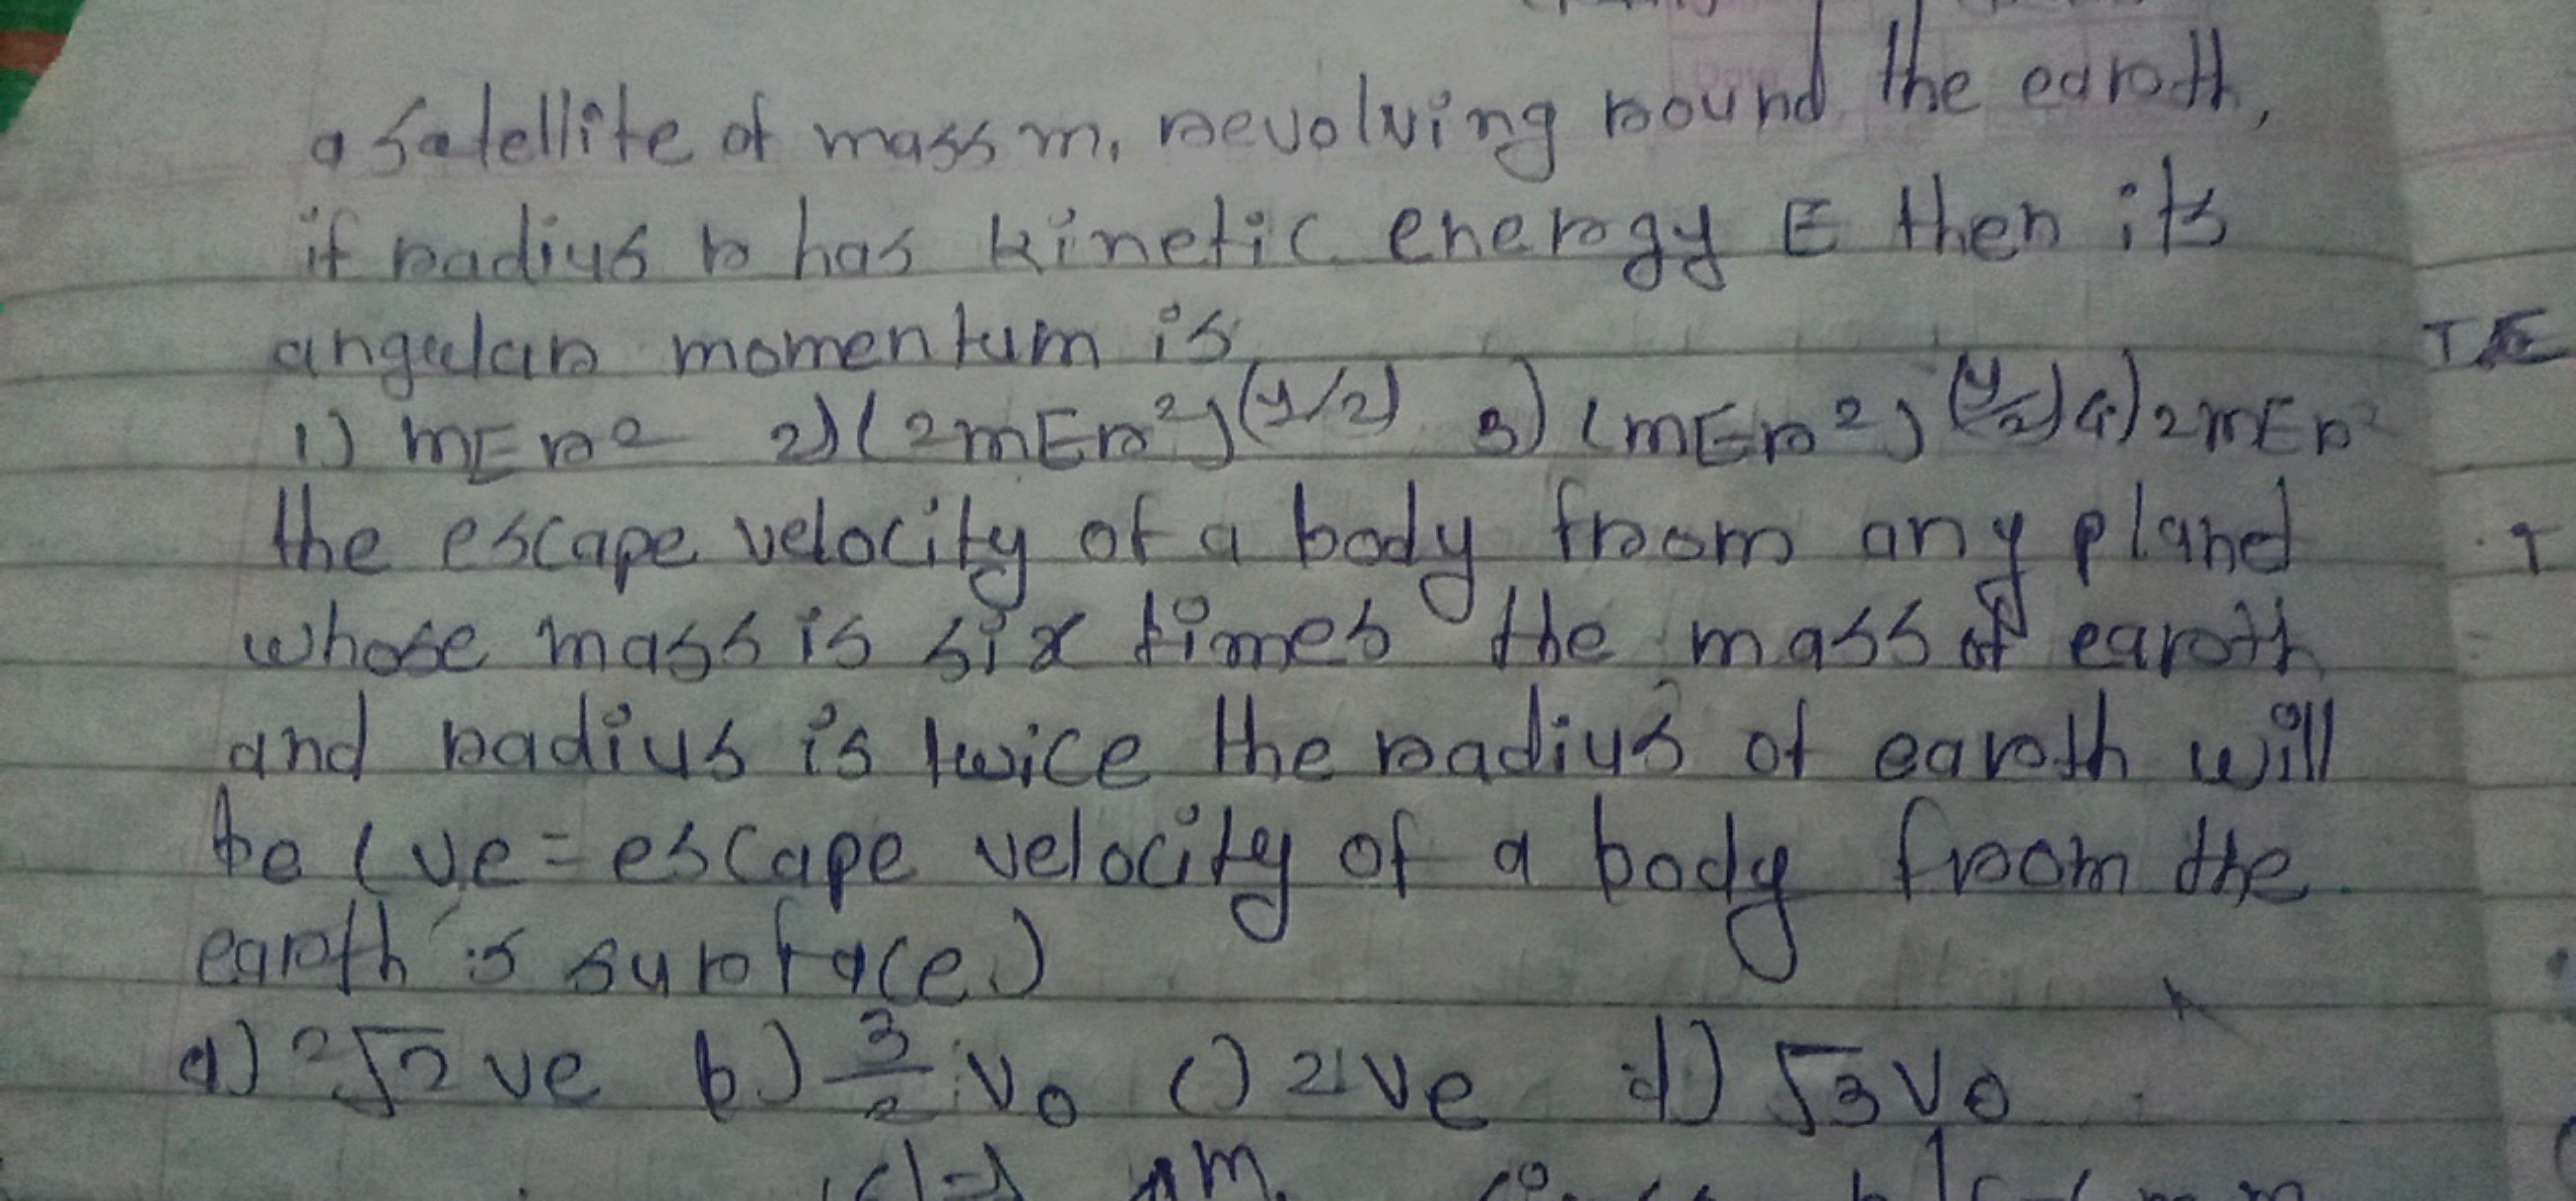 a satellite of mass m, revolving round the earth,
if radius r has kinetic energy E then its
angular momentum is
1) mEr² 2) (2mEr²)^(1/2) 3) (mEr²)^(1/2) 4) 2mEr²
the escape velocity of a body from any planet
whose mass is six times the mass of earth
and radius is twice the radius of earth will
be (ve = escape velocity of a body from the
earth's surface)
a) 2√2 ve b) 3/2 vo c) 2ve d) √3 vo